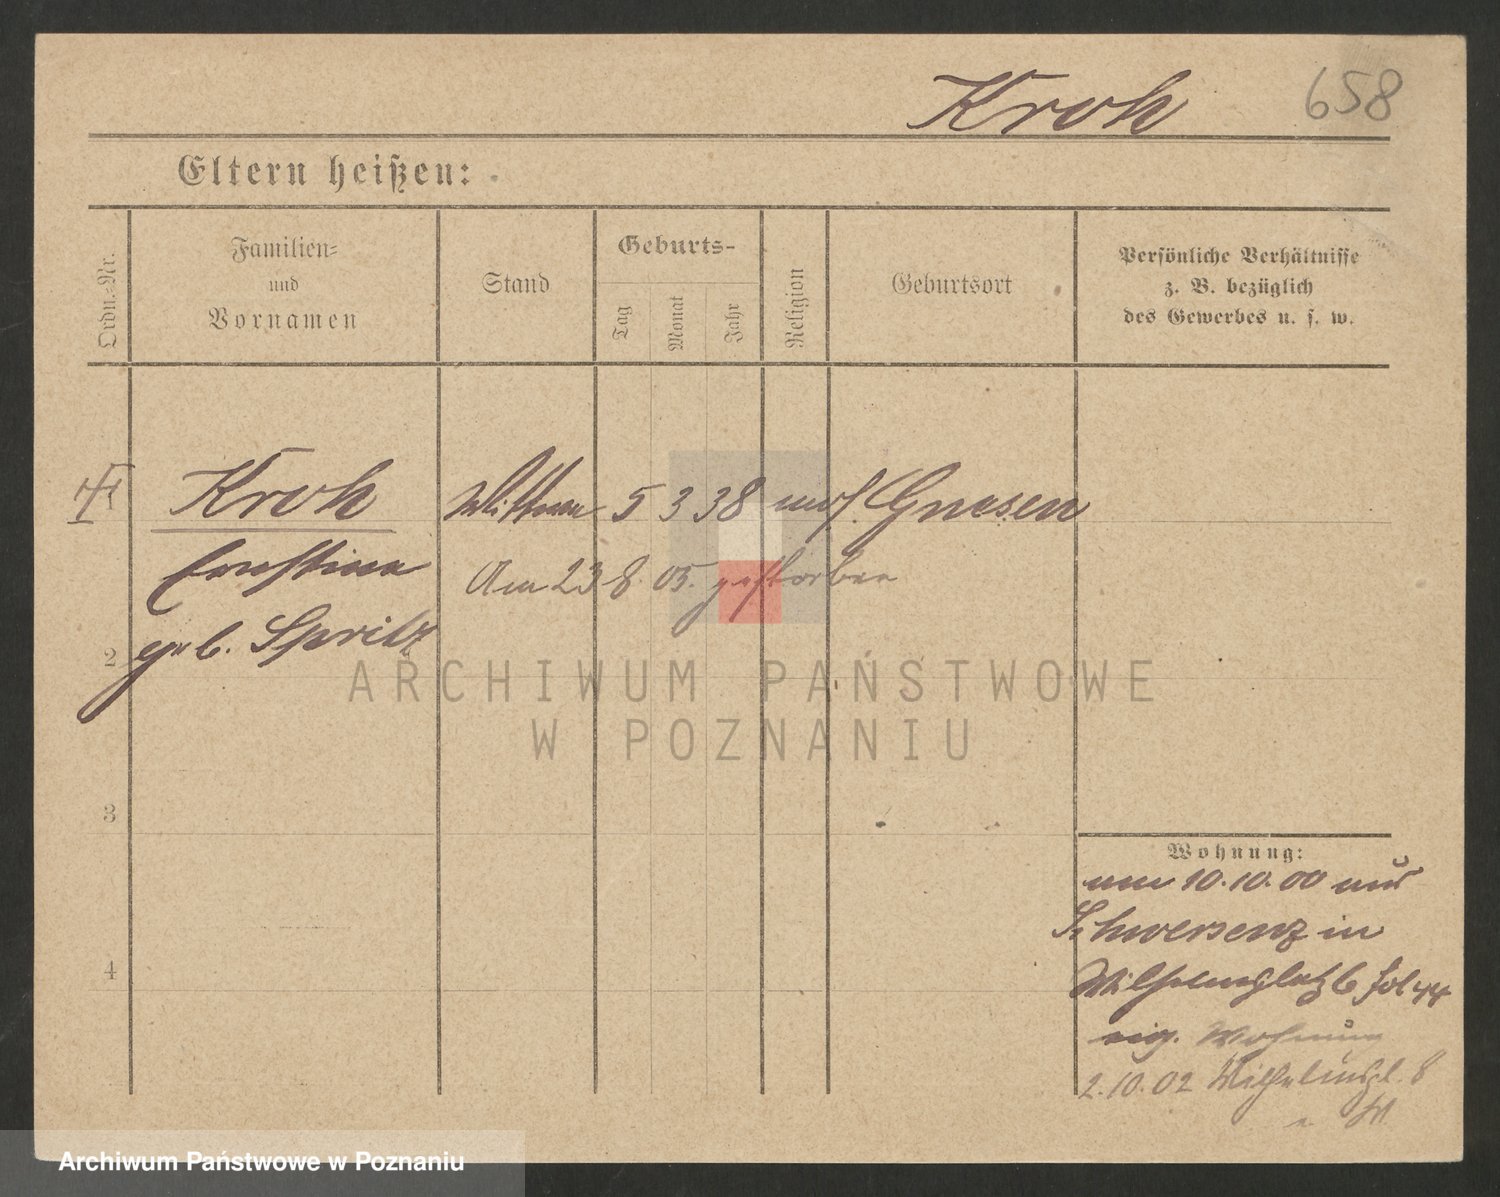 Kroh 658
Eltern heißen:
Ordn.-Nr.
Familien-
und
Vornamen
Stand
Geburts-
Tag
Monat
Jahr
Religion
Geburtsort
Persönliche Verhältnisse
z. B. bezüglich
des Gewerbes u. s. w.
1 Kroh Wittwe 5 3 38 mos. Gnesen
Ernstine
Am 23 8. 05. gestorben
2 geb. Spritz
ARCHIWUM PAŃSTWOWE
W POZNANIU
3
Wohnung:
am 10.10.00 aus
Schwersenz in
4 Wilhelmsplatz 6 fol 44
eig. Wohnung
2.10.02 Wilhelmspl. 8
Archiwum Państwowe w Poznaniu